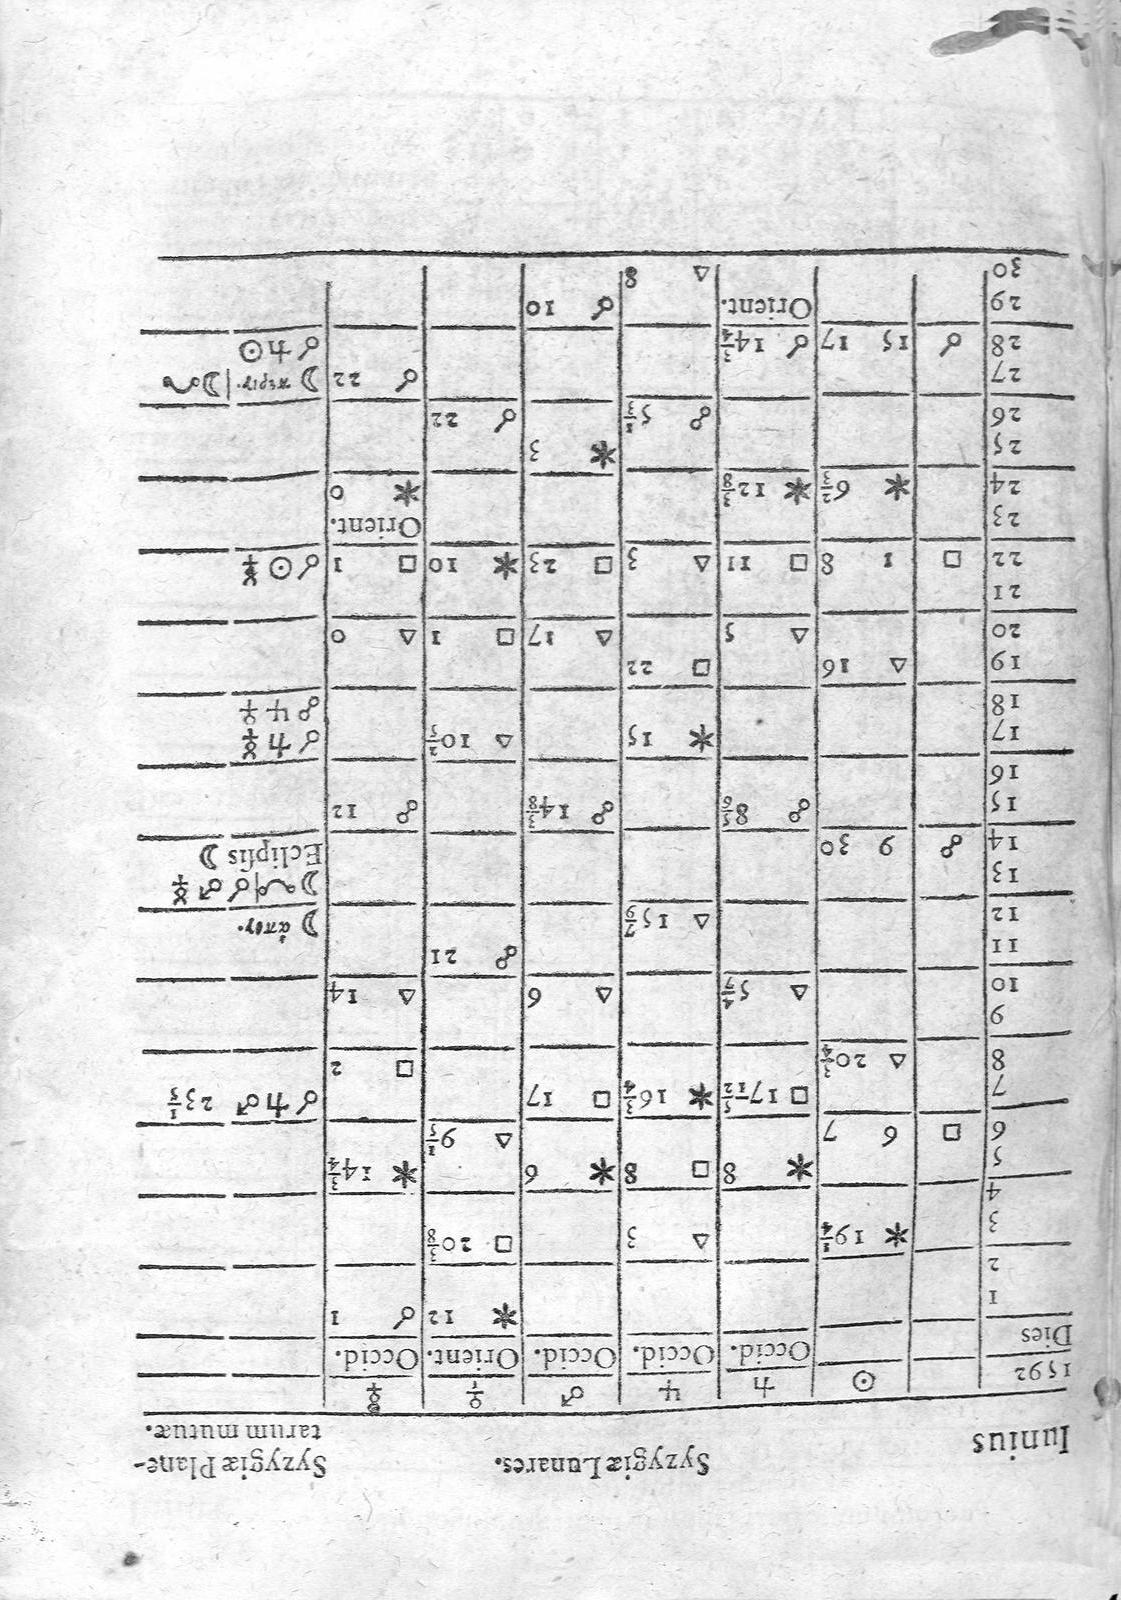 Iunius Syzygiæ Lunares. Syzygiæ Plane-
tarum mutuæ.
1592 ☉ ♄ ♃ ♂ ♀ ☿
Dies Occid. Occid. Occid. Orient. Occid.
1 ✶ 12 ☌ 1
2
3 ✶ 19 1/4 △ 3 □ 20 3/8
4
5 ✶ 8 □ 8 ✶ 6 ✶ 14 3/4
6 □ 6 7 △ 9 1/5
7 □ 17 5/12 ✶ 16 3/4 □ 17 ☌ ♄ ♂ 23 1/5
8 △ 20 3/4 □ 2
9
10 △ 5 4/7 △ 6 △ 14
11 ☍ 21
12 △ 15 7/9 ☽ ἀπογ.
13 ☽ ☊ | ☌ ♂ ☿
14 ☍ 9 30 Eclipſis ☽
15 ☍ 8 5/6 ☍ 14 3/8 ☍ 12
16
17 ✶ 15 △ 10 2/5 ☌ ♄ ☿
18 ☍ ♃ ♀
19 △ 16 □ 22
20 △ 5 △ 17 □ 1 △ 0
21
22 □ 1 8 □ 11 △ 3 □ 23 ✶ 10 □ 1 ☌ ☉ ☿
23 Orient.
24 ✶ 6 2/3 ✶ 12 3/8 ✶ 0
25 ✶ 3
26 ☍ 5 1/3 ☌ 22
27 ☌ 22 ☽ περιγ. | ☽ ☋
28 ☌ 15 17 ☌ 14 3/4 ☌ ♄ ☉
29 Orient. ☌ 10
30 △ 8